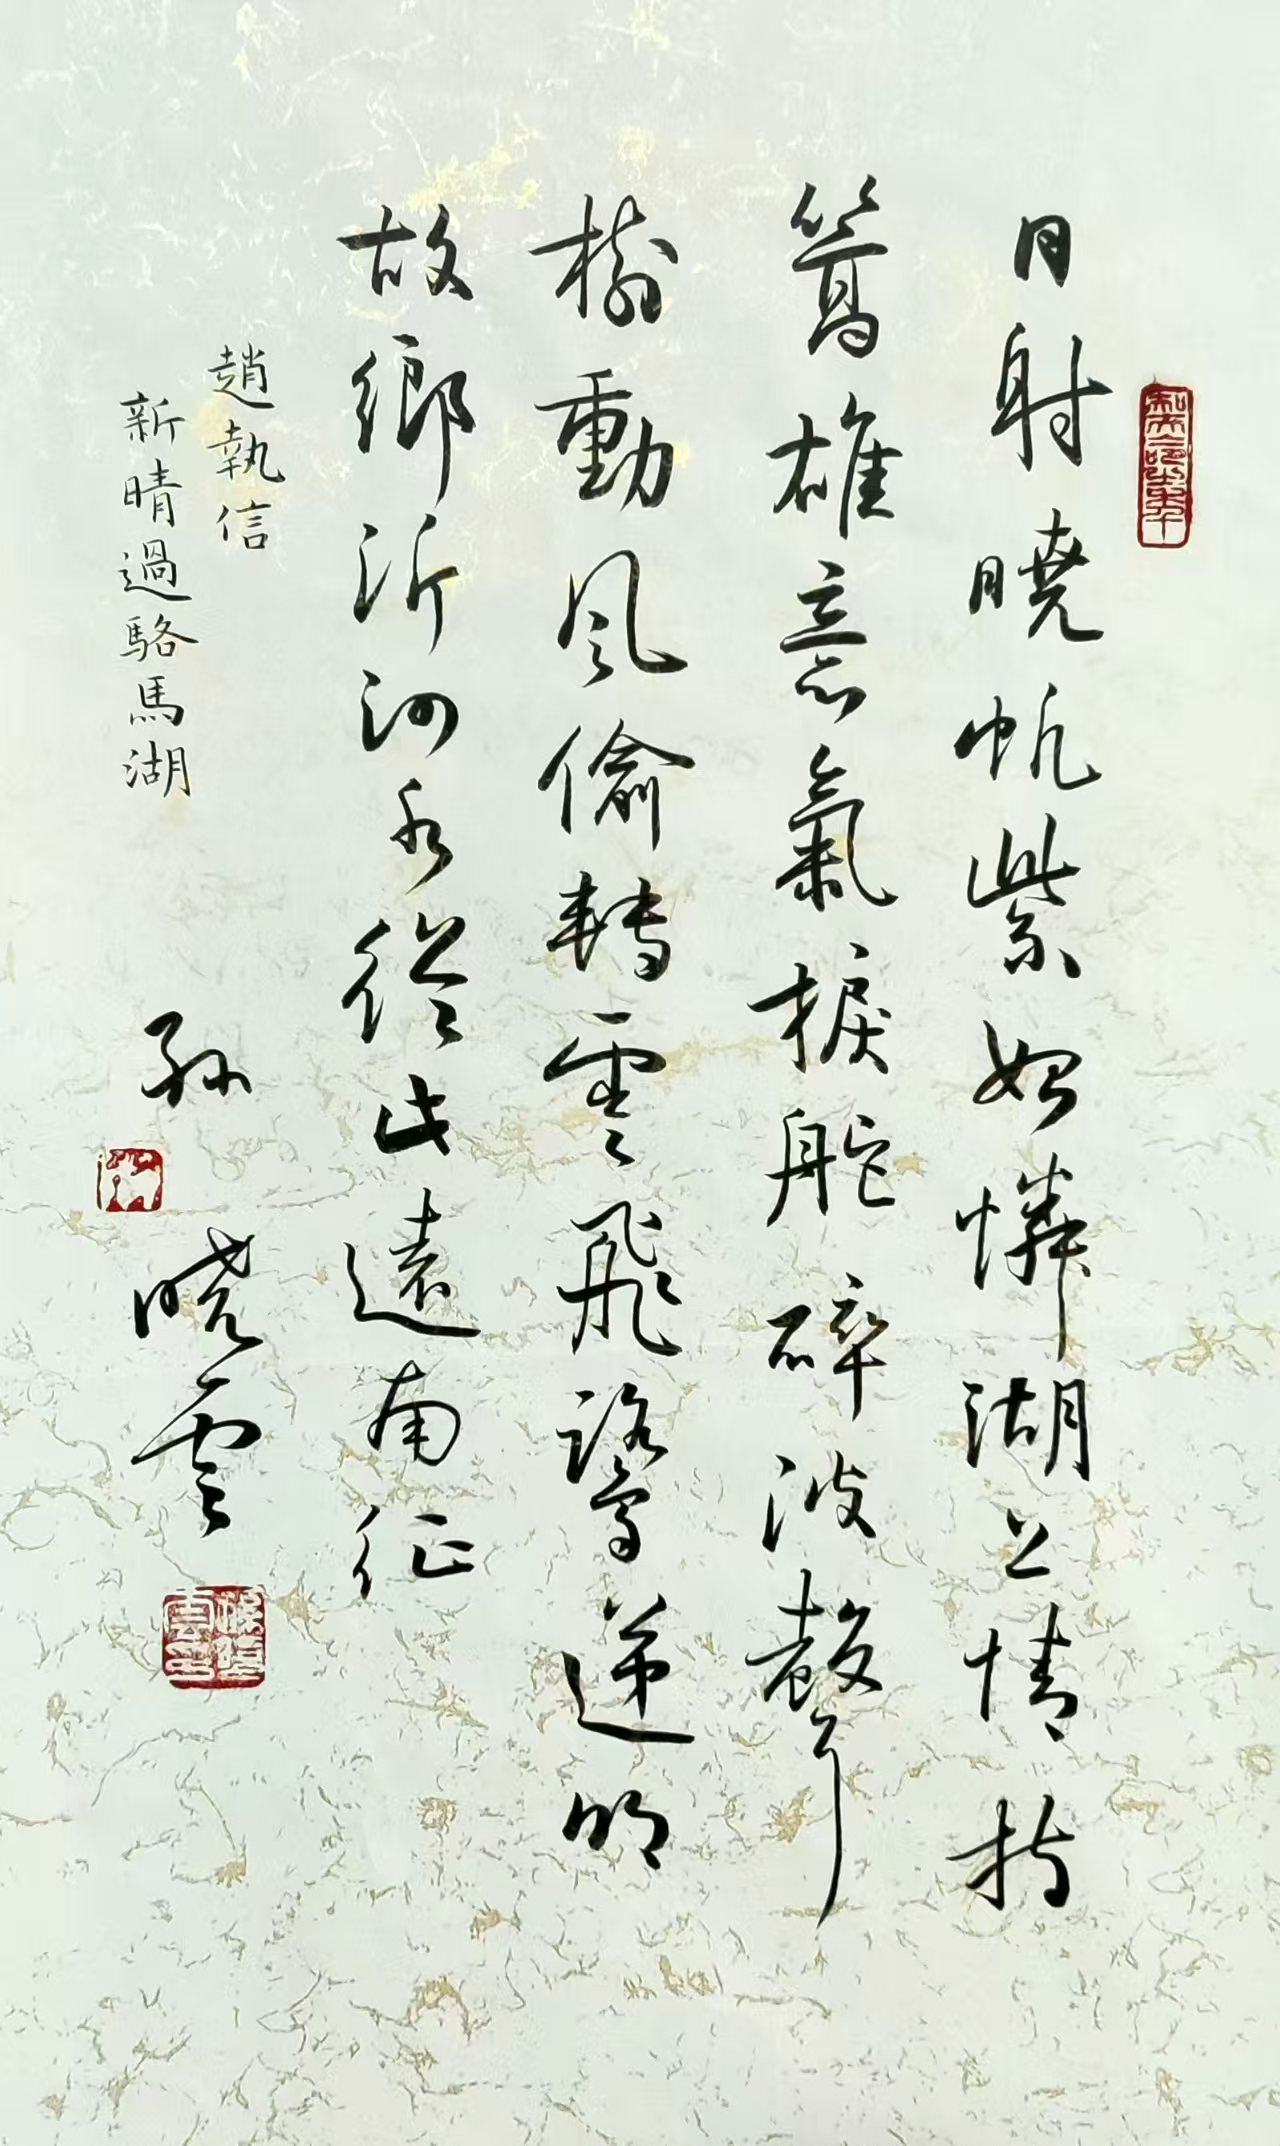 日射曉帆紫始憐湖上情持
篙雄意氣捩舵碎波聲
樹動風偷轉雲飛路遞明
故鄉沂河水從此遠南征
趙執信
新晴過駱馬湖
孫曉雲